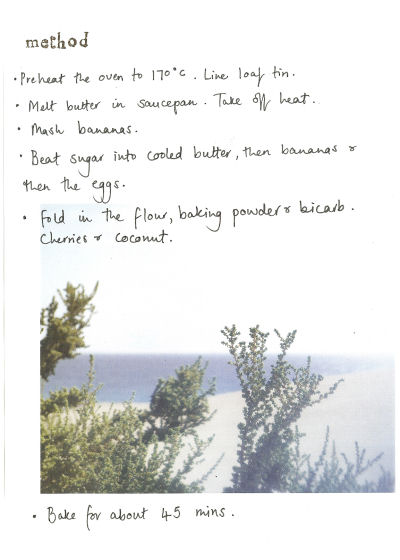 method
• Preheat the oven to 170°c. Line loaf tin.
• Melt butter in saucepan. Take off heat.
• Mash bananas.
• Beat sugar into cooled butter, then bananas &
then the eggs.
• Fold in the flour, baking powder & bicarb.
Cherries & coconut.
• Bake for about 45 mins.